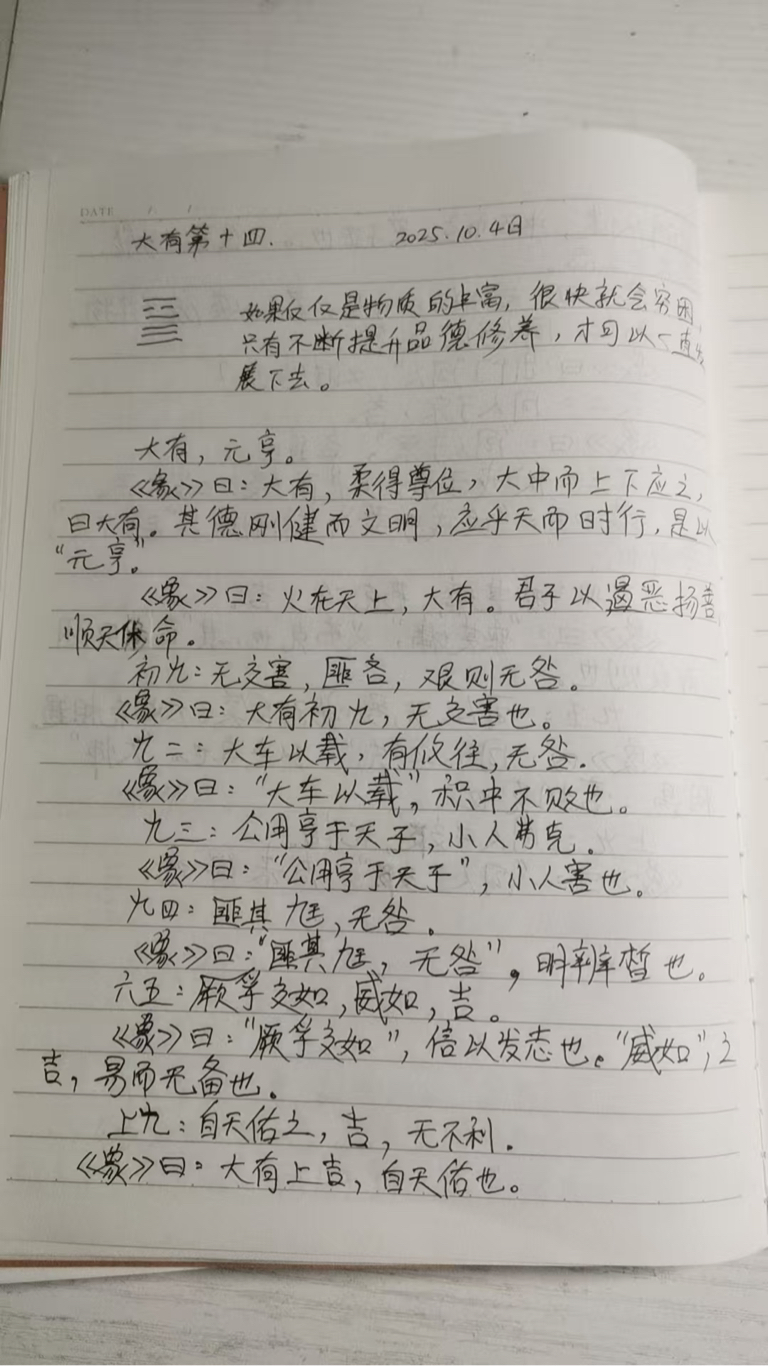 DATE / /
大有第十四. 2025.10.4日
如果仅仅是物质的丰富,很快就会穷困
只有不断提升品德修养,才可以一直发
展下去。
大有,元亨。
《彖》曰:大有,柔得尊位,大中而上下应之,
曰大有。其德刚健而文明,应乎天而时行,是以
“元亨。”
《象》曰:火在天上,大有。君子以遏恶扬善
顺天休命。
初九:无交害,匪咎,艰则无咎。
《象》曰:大有初九,无交害也。
九二:大车以载,有攸往,无咎.
《象》曰:“大车以载”,积中不败也。
九三:公用亨于天子,小人弗克.
《象》曰:“公用亨于天子”,小人害也.
九四:匪其尪,无咎.
《象》曰:“匪其尪,无咎”,明辨晳也。
六五:厥孚交如,威如,吉。
《象》曰:“厥孚交如”,信以发志也。“威如”,之
吉,易而无备也.
上九:自天佑之,吉,无不利.
《象》曰:大有上吉,自天佑也。